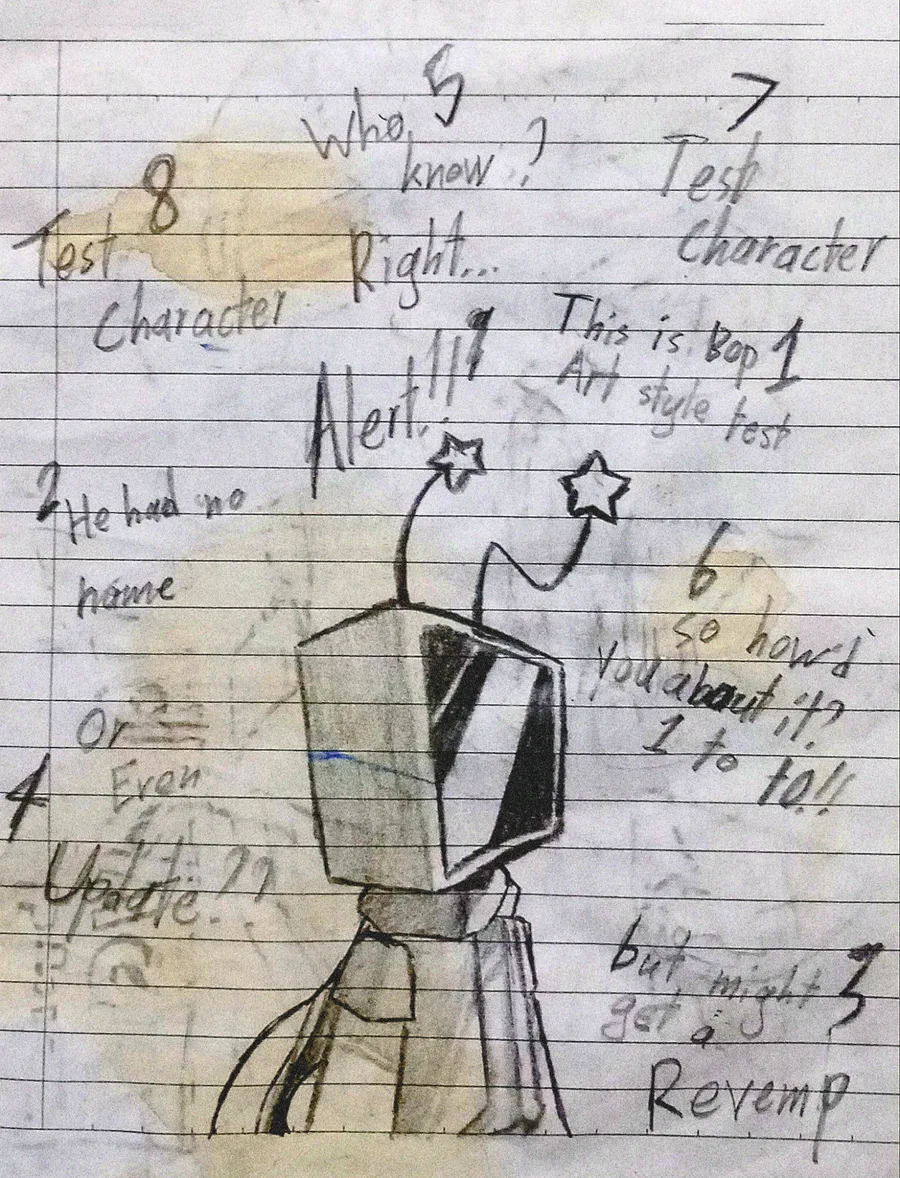 5
Who
know?
Right...
7
Test
Character
8
Test
Character
Alert!!!
This is Bop 1
Art style test
2 He had no
name
6
so how'd
you about it?
1 to to!!
Or
Even
4
Update??
but might 3
get a
Revemp